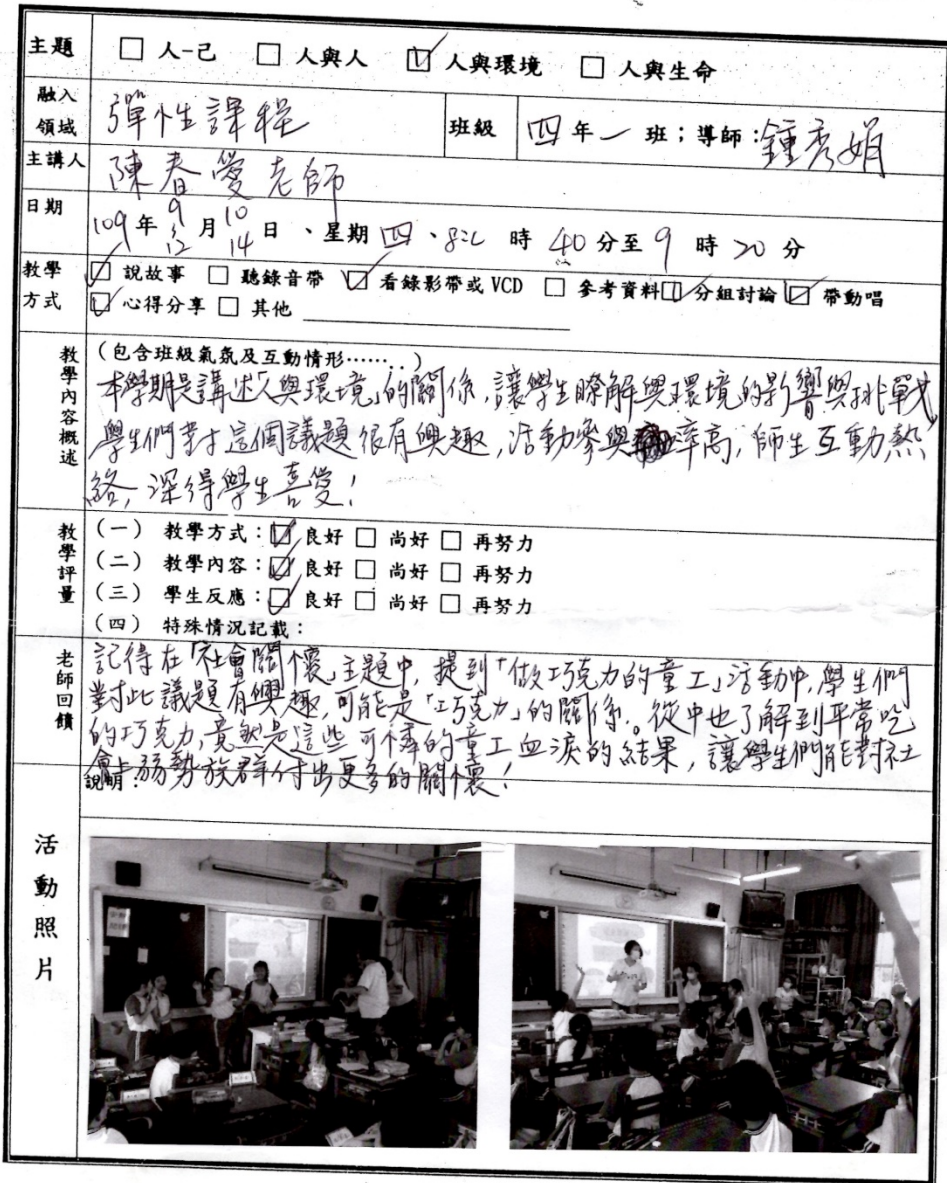 主題 □ 人-己 □ 人與人 ☑ 人與環境 □ 人與生命
融入領域 彈性課程 班級 四年一班；導師：鍾秀娟
主講人 陳春愛老師
日期 109年 9 月 10 日、星期四、8 時 40分至 9 時 20 分
12 14
教學方式 ☑ 說故事 □ 聽錄音帶 ☑ 看錄影帶或 VCD □ 參考資料 ☑ 分組討論 ☑ 帶動唱
☑ 心得分享 □ 其他
教學內容概述 (包含班級氣氛及互動情形……..)
本學期是講述「人與環境」的關係，讓學生瞭解與環境的影響與挑戰
學生們對於這個議題很有興趣，活動參與率高，師生互動熱
絡，深得學生喜愛！
教學評量 (一) 教學方式：☑ 良好 □ 尚好 □ 再努力
(二) 教學內容：☑ 良好 □ 尚好 □ 再努力
(三) 學生反應：☑ 良好 □ 尚好 □ 再努力
(四) 特殊情況記載：
老師回饋 記得在「社會關懷」主題中，提到「做巧克力的童工」活動中，學生們
對此議題有興趣，可能是「巧克力」的關係。從中也了解到平常吃
的巧克力，竟然是這些可憐的童工血淚的結果，讓學生們能對社
會上弱勢族群付出更多的關懷！
說明：
活動照片